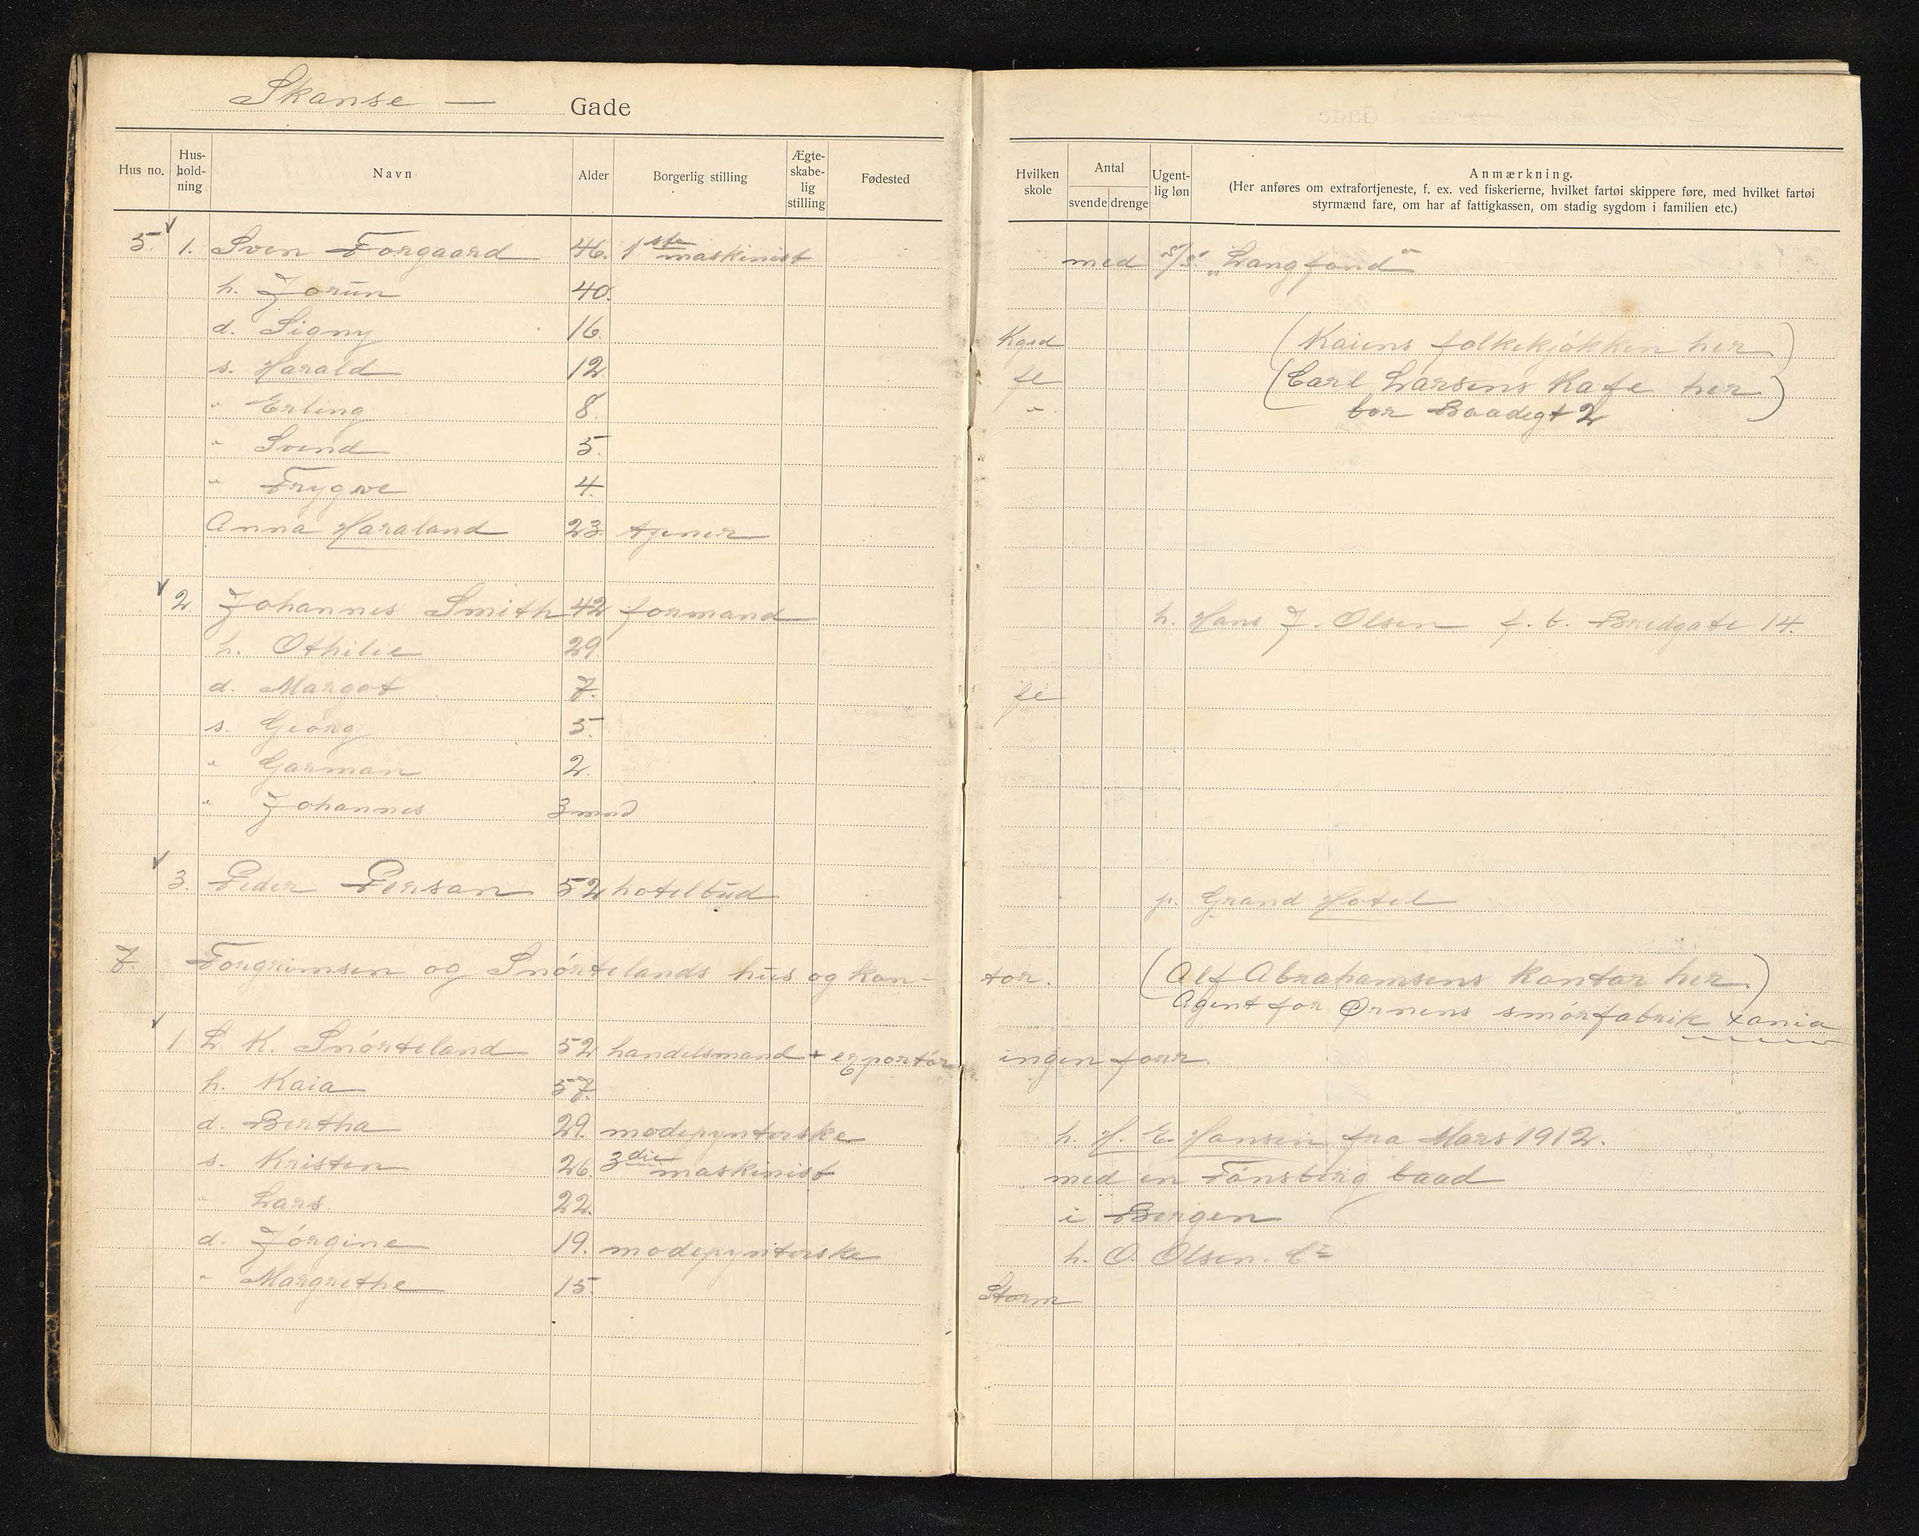 Skanse — Gade
Hus no. Hus-hold-ning Navn Alder Borgerlig stilling Ægte-skabe-lig stilling Fødested Hvilken skole Antal svende drenge Ugent-lig løn Anmærkning.
(Her anføres om extrafortjeneste, f. ex. ved fiskerierne, hvilket fartøi skippere føre, med hvilket fartøi
styrmænd fare, om har af fattigkassen, om stadig sygdom i familien etc.)
5. 1. Sven Torgaard 46. 1ste maskinist med s/s. „Langfond"
h. Jorun 40.
d. Signy 16. (Kaiens folkekjøkken her)
s. Harald 12. fe (Carl Larsens Kafe her
" Erling 8. " bor Baadegt 2)
" Svend 5.
" Trygve 4.
Anna Haraland 23. tjener
2 Johannes Smith 42 formand h. Hans J. Olsen f. b. Bredgate 14.
h. Othilie 29.
d. Margot 7. fe
s. Georg 5.
" Garman 2.
" Johannes 3 mnd
3. Peder Persan 52 hotelbud p. Grand Hotel
7. Torgrimsen og Snørtelands hus og kon- tor. (Alf Abrahamsens kontor her.)
Agent for Ørnens smørfabrik Xania
1 L. K. Snørteland 52 handelsmand + exportør ingen forr.
h. Kaia 57.
d. Bertha 29. modepynterske h. H. E. Hansen fra Mars 1912.
s. Kristen 26. 3die maskinist med en Tønsberg baad
" Lars 22. i Bergen
d. Jørgine 19. modepynterske h. O. Olsen. Co
" Margrethe 15. Storm